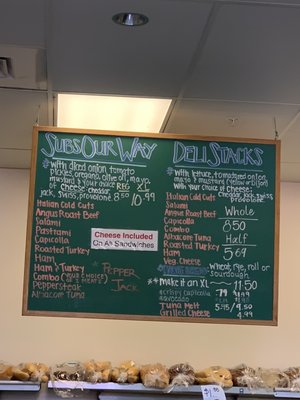 SUBS OUR WAY
*with diced onion, tomato
pickles, oregano, olive oil, mayo,
mustard & your choice
of cheese: cheddar,
jack, swiss, provolone.
REG XL
8.50 10.99
Italian Cold Cuts
Angus Roast Beef
Salami
Pastrami
Capicolla
Roasted Turkey
Ham
Ham & Turkey
Combo (your choice of 3 meats)
Peppersteak
Albacore Tuna
Cheese Included
On All Sandwiches
*PEPPER
JACK
DELI STACKS
*with lettuce, tomato, onion,
mayo & mustard
with your choice of cheese:
cheddar, jack, swiss
provolone
Italian Cold Cuts
Salami
Angus Roast Beef
Capicolla
Combo
Albacore Tuna
Roasted Turkey
Ham
Veg. Cheese
Whole
8.50
Half
5.69
wheat, rye, roll or
sourdough
*make it an XL ~ 11.50
*crispy capicolla
*avocado
Tuna Melt
Grilled Cheese 4.99